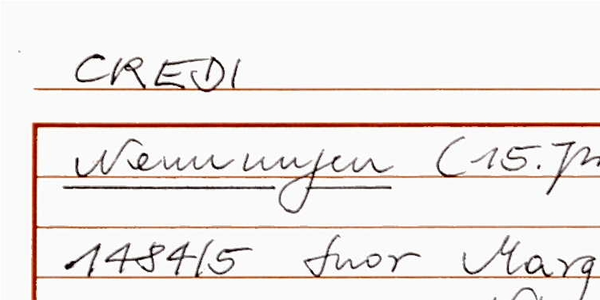 CREDI
Nennungen (15. Jh
1484/5 Suor Marg